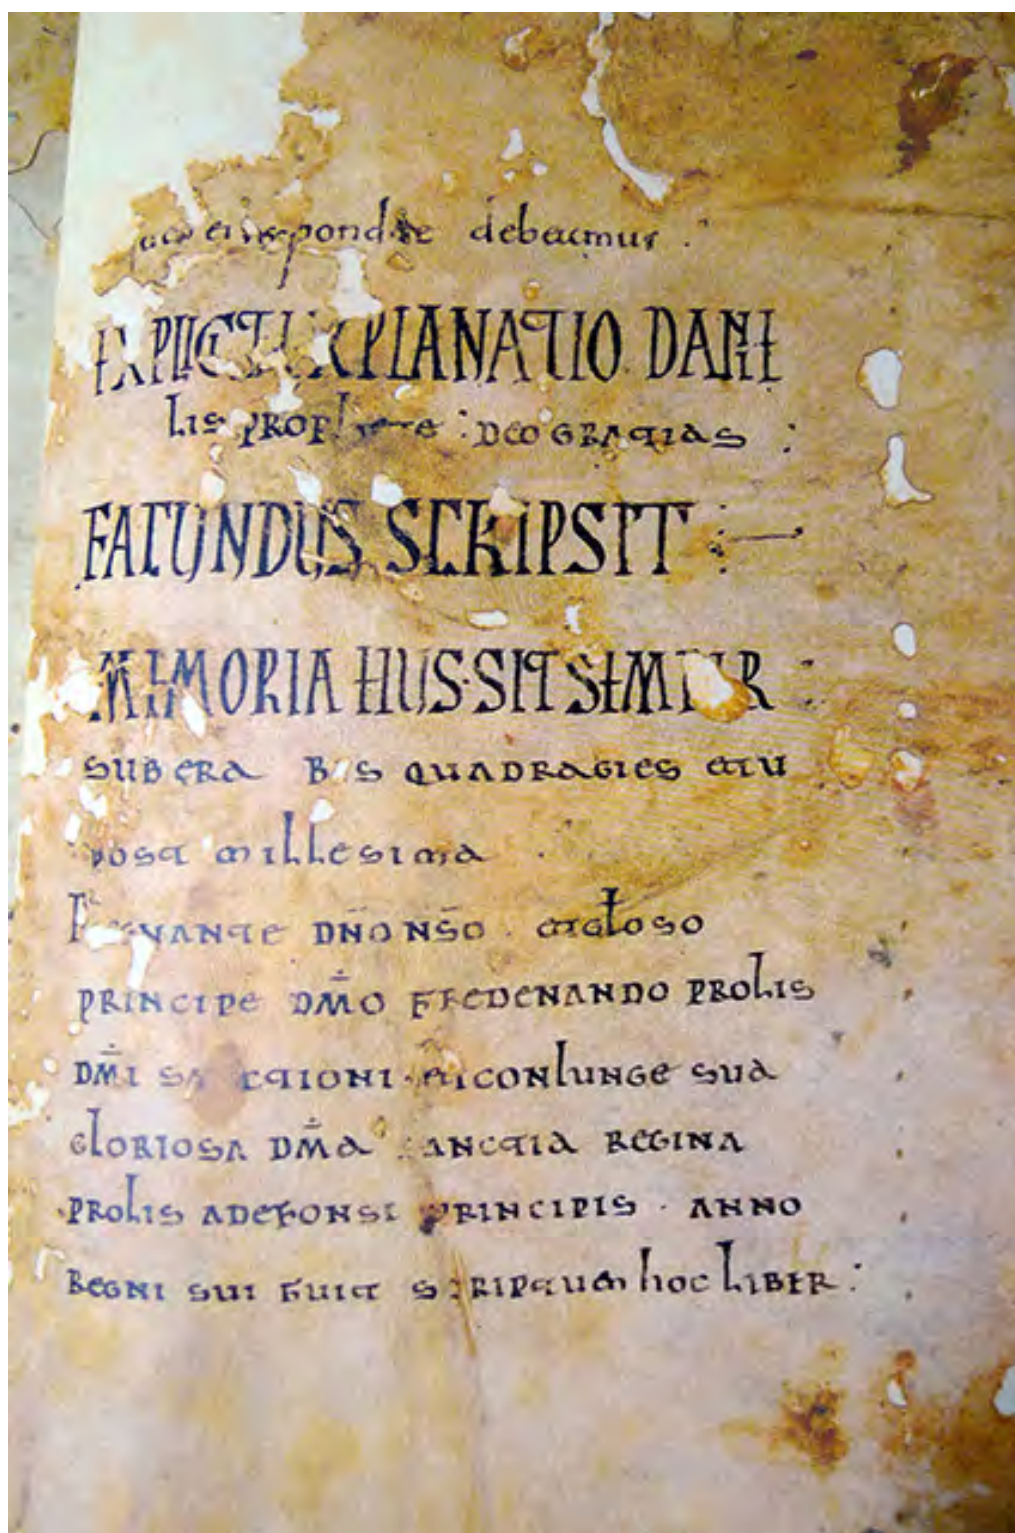 ei respondere debeamus .
EXPLICIT EXPLANATIO DANIE
LIS PROPHETE : DEO GRATIAS :
FACUNDUS SCRIPSIT :
MEMORIA EIUS · SIT SEMPER :
SUB ERA BIS QUADRAGIES ET U
POST MILLESIMA
REGNANTE DÑO NSO · ET GLOSO
PRINCIPE DMO FREDENANDO PROLIS
DMI SANCTIONI · ET CONIUNGE SUA
GLORIOSA DMA SANCTIA REGINA
PROLIS ADEFONSI PRINCIPIS · ANNO
REGNI SUI FUIT SCRIPTUM HOC LIBER :